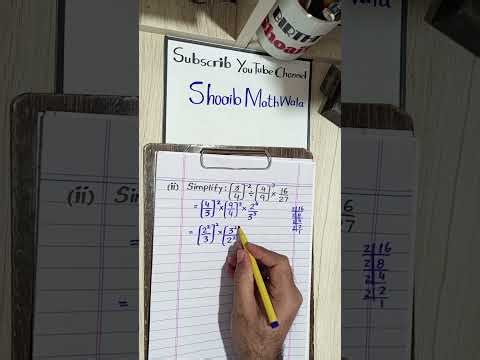 Subscrib YouTube Channel
Shoaib MathWala
(ii) Simplify: (3/4)^-2 ÷ (4/9)^3 × 16/27
= (4/3)^2 × (9/4)^3 × 2^4/3^3
= (2^2/3)^2 × (3^2/2^2
2 | 16
2 | 8
2 | 4
2 | 2
1
(ii)
=
2 | 16
2 | 8
2 | 4
2 | 2
1